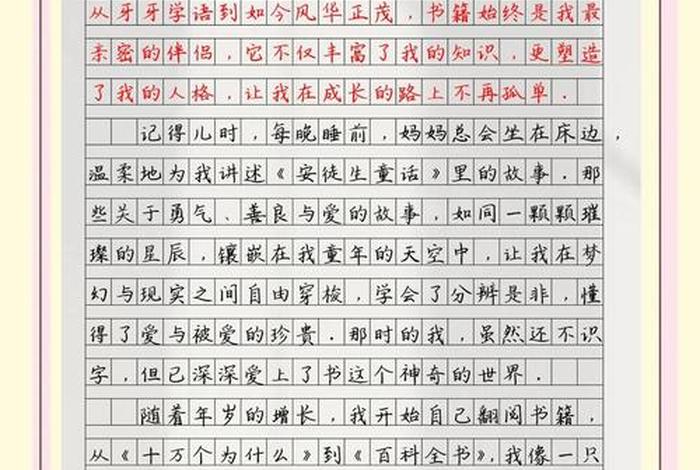 从牙牙学语到如今风华正茂，书籍始终是我最
亲密的伴侣，它不仅丰富了我的知识，更塑造
了我的人格，让我在成长的路上不再孤单．
记得儿时，每晚睡前，妈妈总会坐在床边，
温柔地为我讲述《安徒生童话》里的故事．那
些关于勇气、善良与爱的故事，如同一颗颗璀
璨的星辰，镶嵌在我童年的天空中，让我在梦
幻与现实之间自由穿梭，学会了分辨是非，懂
得了爱与被爱的珍贵．那时的我，虽然还不识
字，但已深深爱上了书这个神奇的世界．
随着年岁的增长，我开始自己翻阅书籍，
从《十万个为什么》到《百科全书》，我像一只